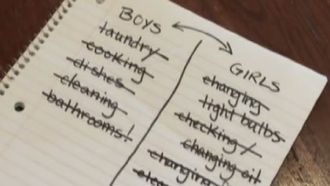 BOYS
laundry
cooking
dishes
cleaning
bathrooms!
GIRLS
changing
light bulbs
checking /
changing oil
changing